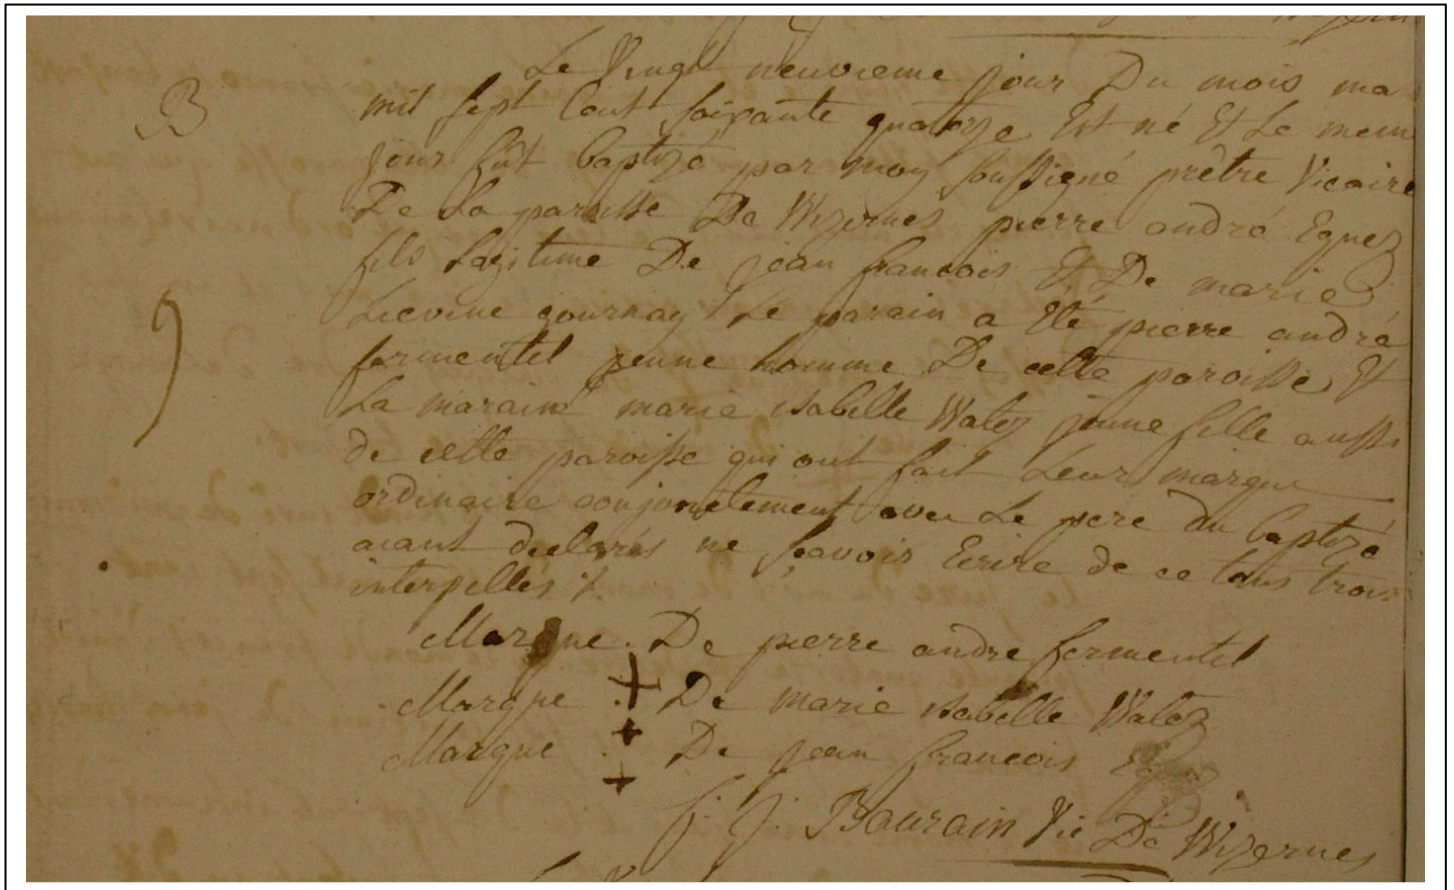 B
Le vingt neuvieme jour Du mois ma
mil sept Cent soixante quatorze Est né Et Le meme
jour fût baptizé par moy soussigné prêtre Vicaire
De La paroisse De Wizernes pierre andré Eguez
fils Légitime De jean francois Et De marie
Lievine gournay Le parain a Eté pierre andré
fermentel jeune homme De cette paroisse Et
La maraine marie isabelle Walez jeune fille aussi
de cette paroisse qui ont fait Leur marque
ordinaire conjointement avec Le pere du baptizé
aiant declarés ne scavoir Ecrire de ce tous trois
interpelles
Marque De pierre andre fermentel
Marque De marie isabelle Walez
Marque De jean francois
f. j. Baurain Vic De Wizernes